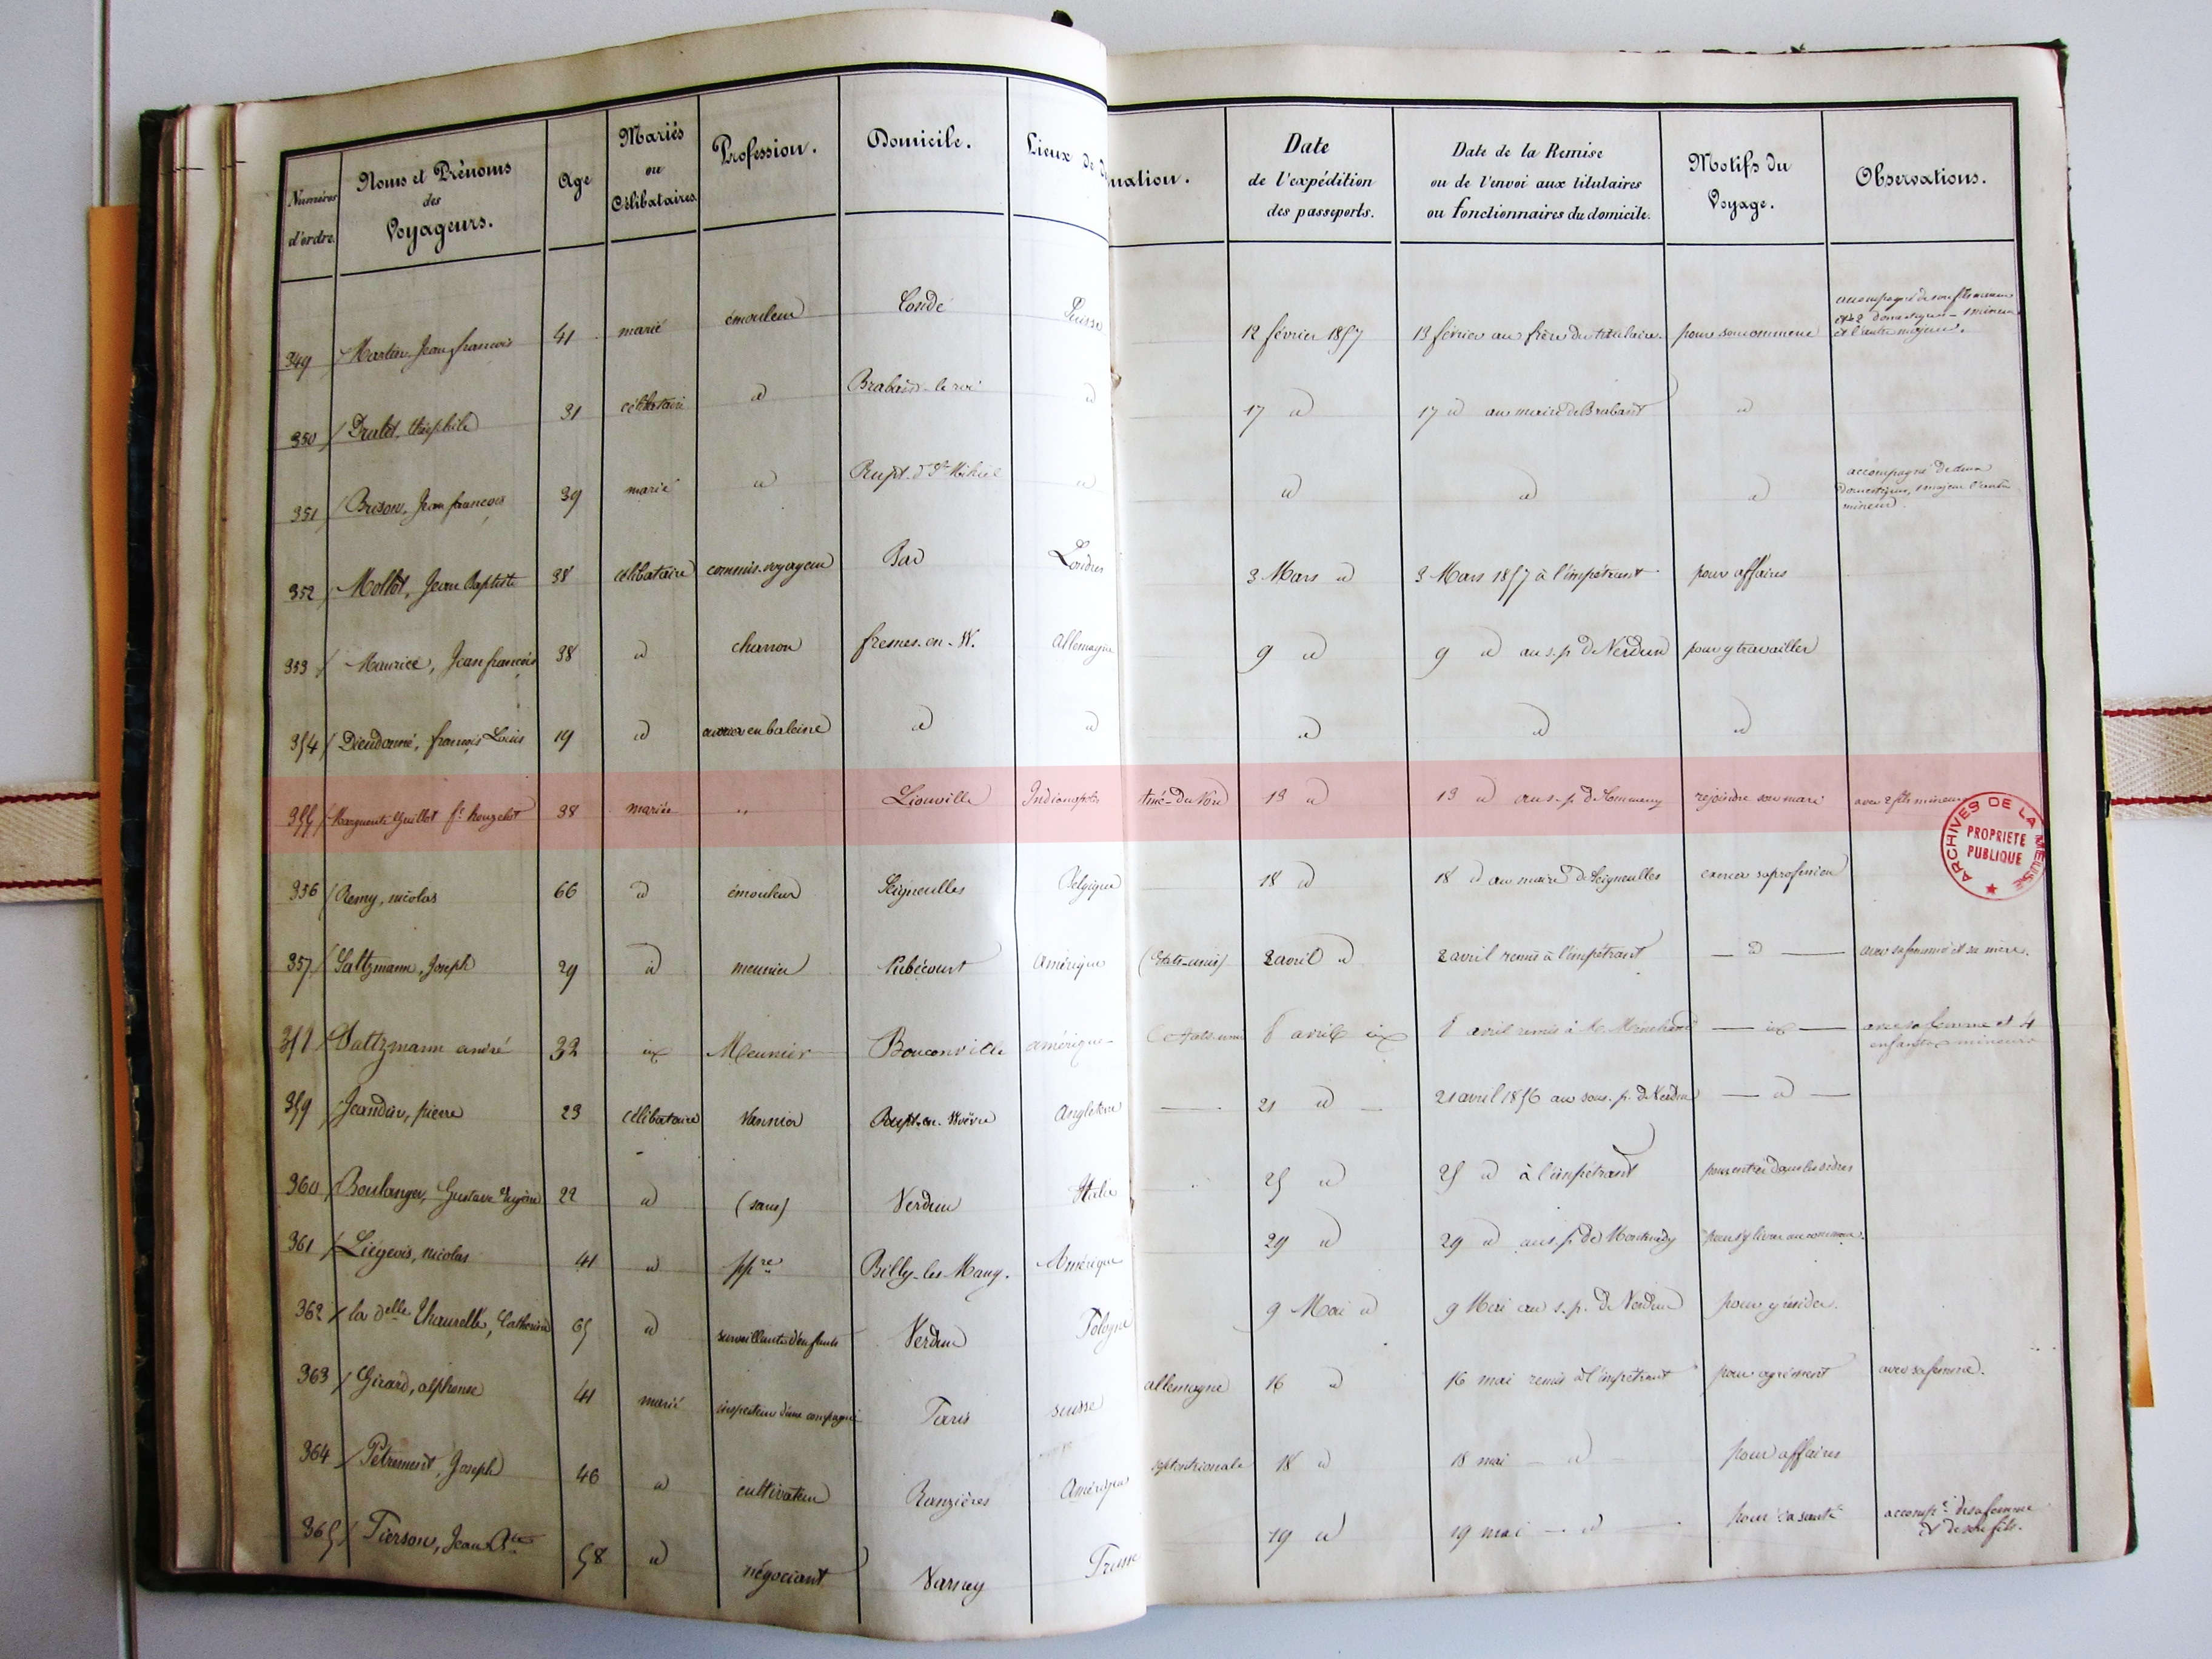 Numéros d'ordre. Noms et Prénoms des Voyageurs. Age Mariés ou Célibataires. Profession. Domicile. Lieux de D nation. Date de l'expédition des passeports. Date de la Remise ou de l'envoi aux titulaires ou fonctionnaires du domicile. Motifs du Voyage. Observations.
349 Martin, Jean françois 41 marié émouleur Condé Suisse 12 février 1857 13 février au frère du titulaire. pour son commerce accompagné de son fils mineur et de 2 domestiques - 1 mineur et l'autre majeur.
350 théophile 31 célibataire id Brabant-le-roi id 17 id 17 id au maire de Brabant id
351 Brison, Jean françois 39 marié id Rupt-d. St Mihiel id id id id accompagné de deux domestiques, 1 majeur l'autre mineur.
352 Mollot, Jean Baptiste 38 célibataire commis-voyageur Bar Londres 3 Mars id 3 Mars 1857 à l'impétrant pour affaires
353 Maurice, Jean françois 38 id charron fresnes-en-W. Allemagne 9 id 9 id au s.p. de Verdun pour y travailler
354 Dieudonné, françois Louis 19 id ouvrier en baleine id id id id id
355 Marguerite Guillot fe 38 mariée " Liouville Indianapolis du Nord 13 id 13 id au s.p. de Commercy rejoindre son mari avec 2 fils mineurs
ARCHIVES DE LA MEUSE PROPRIETE PUBLIQUE
356 Remy, nicolas 66 id émouleur Seigneulles Belgique 18 id 18 id au maire de Seigneulles exercer sa profession
357 Saltzmann, Joseph 29 id meunier Nubécourt Amérique (Etats-unis) 2 avril id 2 avril remis à l'impétrant — id — avec sa femme et sa mère.
358 Saltzmann andré 32 id Meunier Bouconville amérique (Etats-unis 8 avril id 8 avril remis à — id — avec sa femme et 4 enfants mineurs
359 Jeandin, pierre 23 célibataire Vannier Rupt-en-Woëvre Angleterre 21 id 21 avril 1856 au sous-p. de Verdun — id —
360 Boulanger, Gustave Eugène 22 id (sans) Verdun Italie 25 id 25 id à l'impétrant pour entrer dans les ordres
361 Liégeois, nicolas 41 id ppre Billy-les-Mang. Amérique 29 id 29 id au s.p. de Montmédy pour s'y livrer au commerce.
362 la delle Thaurelle, Catherine 65 id surveillante d'enfants Verdun Pologne 9 Mai id 9 Mai au s.p. de Verdun pour y résider.
363 Girard, alphonse 41 marié inspecteur d'une compagnie Paris suisse allemagne 16 id 16 mai remis à l'impétrant pour agrément avec sa femme.
364 Petrement, Joseph 46 id cultivateur Ranzières Amérique septentrionale 18 id 18 mai — id pour affaires
365 Pierson, Jean Bte 58 id négociant Varney Prusse 19 id 19 mai — id — pour sa santé accompé de sa femme & de son fils.